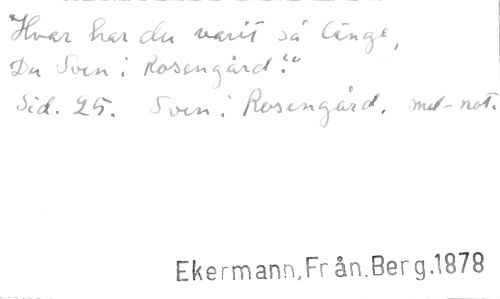 "Hvar har du varit så länge,
Du Sven i Rosengård."
Sid. 25. Sven i Rosengård. mel-not.
Ekermann, Från. Berg. 1878